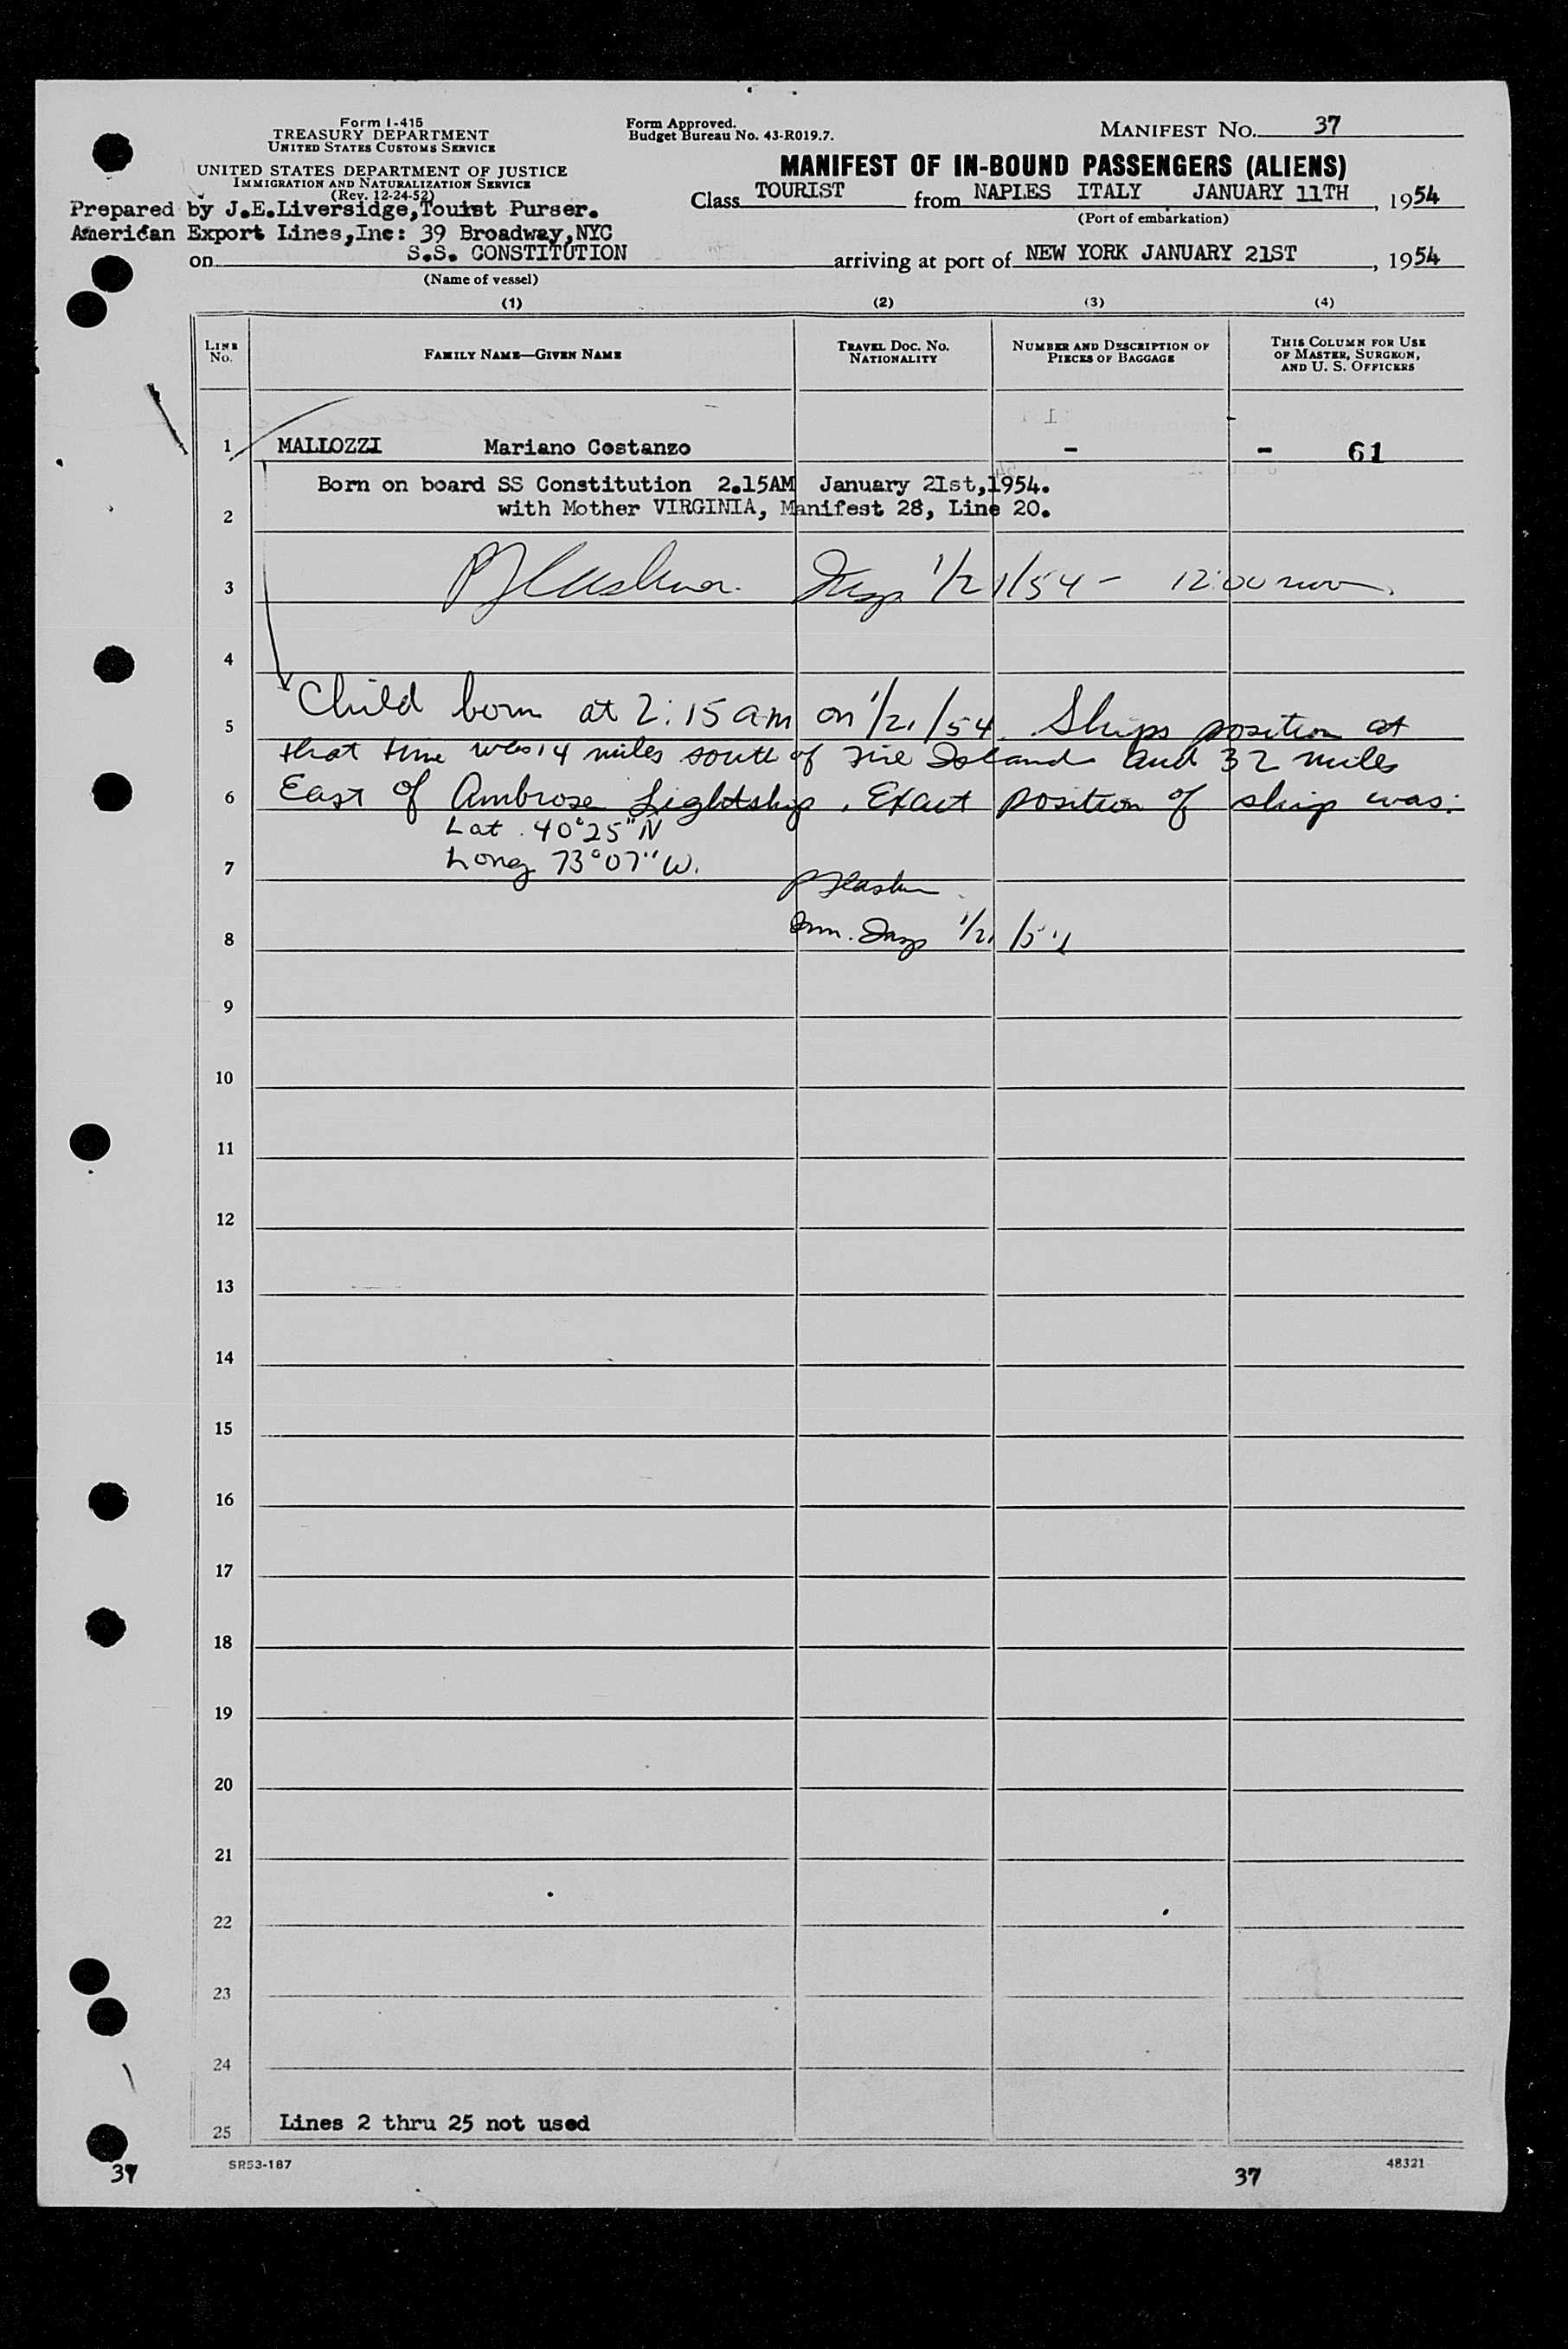 Form I-415
TREASURY DEPARTMENT
UNITED STATES CUSTOMS SERVICE
UNITED STATES DEPARTMENT OF JUSTICE
IMMIGRATION AND NATURALIZATION SERVICE
(Rev. 12-24-52)
Form Approved.
Budget Bureau No. 43-R019.7.
MANIFEST No. 37
MANIFEST OF IN-BOUND PASSENGERS (ALIENS)
Class TOURIST from NAPLES ITALY JANUARY 11TH, 1954
(Port of embarkation)
Prepared by J.E.Liversidge,Touist Purser.
American Export Lines,Inc: 39 Broadway,NYC
on S.S. CONSTITUTION arriving at port of NEW YORK JANUARY 21ST, 1954
(Name of vessel)
(1) (2) (3) (4)
LINE No. FAMILY NAME—GIVEN NAME TRAVEL DOC. NO. NATIONALITY NUMBER AND DESCRIPTION OF PIECES OF BAGGAGE THIS COLUMN FOR USE OF MASTER, SURGEON, AND U. S. OFFICERS
1 MALLOZZI Mariano Costanzo - - 61
Born on board SS Constitution 2.15AM January 21st,1954.
2 with Mother VIRGINIA, Manifest 28, Line 20.
3 Insp 1/21/54 - 12:00 noon
4
5 Child born at 2:15 am on 1/21/54. Ships position at
that time was 14 miles south of Fire Island and 32 miles
6 East of Ambrose Lightship. Exact position of ship was:
Lat. 40°25" N
7 Long 73°07" W.
8 Imm. Insp 1/21/54
9
10
11
12
13
14
15
16
17
18
19
20
21
22
23
24
25 Lines 2 thru 25 not used
SR53-187
48321
37
37